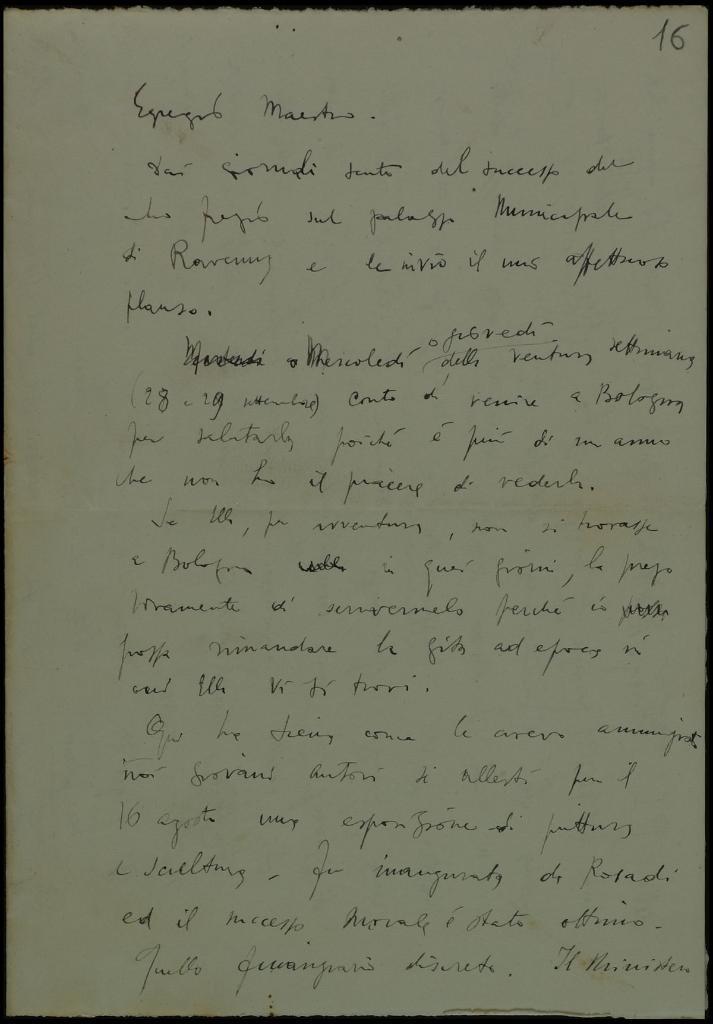 16
Egregio Maestro.
Dai giornali sento del successo del
suo fregio sul palazzo Municipale
di Ravenna e le invio il mio affettuoso
plauso.
o giovedì
o Mercoledì della ventura settimana
(28 e 29 settembre) conto di venire a Bologna
per salutarla poiché è più di un anno
che non ho il piacere di vederla.
Se Ella, per avventura, non si trovasse
a Bologna in quei giorni, la prego
vivamente di scrivermelo perché io
possa rimandare la gita ad epoca in
cui Ella vi si trovi.
Qui a Siena come le avevo annunziato
noi giovani autori si allestì per il
16 agosto una esposizione di pittura
e scultura - fu inaugurata da Rosadi
ed il successo morale è stato ottimo -
Quello finanziario discreto. Il Ministero